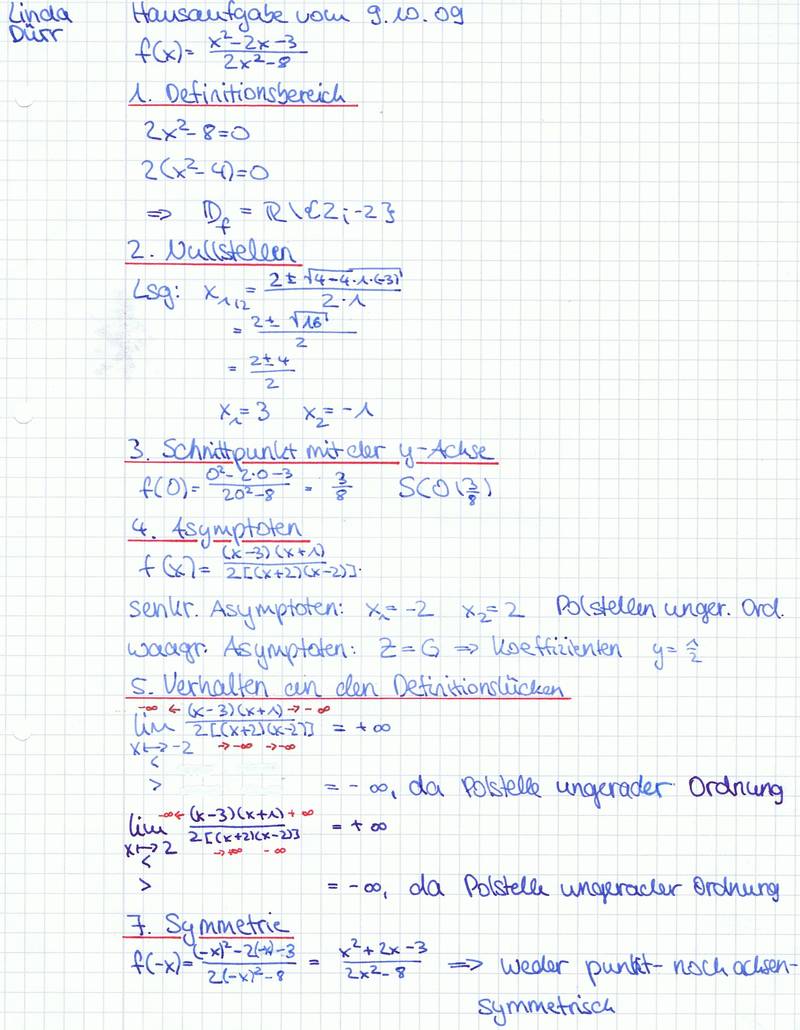 Linda Hausaufgabe vom 9.10.09
Dürr
f(x) = (x²-2x-3)/(2x²-8)
1. Definitionsbereich
2x²-8=0
2(x²-4)=0
=> 𝔻f = ℝ\{2;-2}
2. Nullstellen
Lsg: x1/2 = (2±√(4-4·1·(-3)))/(2·1)
= (2±√16)/2
= (2±4)/2
x1=3 x2=-1
3. Schnittpunkt mit der y-Achse
f(0) = (0²-2·0-3)/(20²-8) = 3/8 S(0|3/8)
4. Asymptoten
f(x) = (x-3)(x+1)/2[(x+2)(x-2)]
senkr. Asymptoten: x1=-2 x2=2 Polstellen unger. Ord.
waagr. Asymptoten: Z=G => Koeffizienten y=1/2
5. Verhalten an den Definitionslücken
-∞ ← (x-3)(x+1) → -∞
lim 2[(x+2)(x-2)] = +∞
x↦-2 →-∞ →-∞
<
> = -∞, da Polstelle ungerader Ordnung
-∞← (x-3)(x+1) +∞
lim 2[(x+2)(x-2)] = +∞
x↦2 →+∞ -∞
<
> = -∞, da Polstelle ungerader Ordnung
7. Symmetrie
f(-x) = ((-x)²-2(-x)-3)/(2(-x)²-8) = (x²+2x-3)/(2x²-8) => weder punkt- noch achsen-
symmetrisch